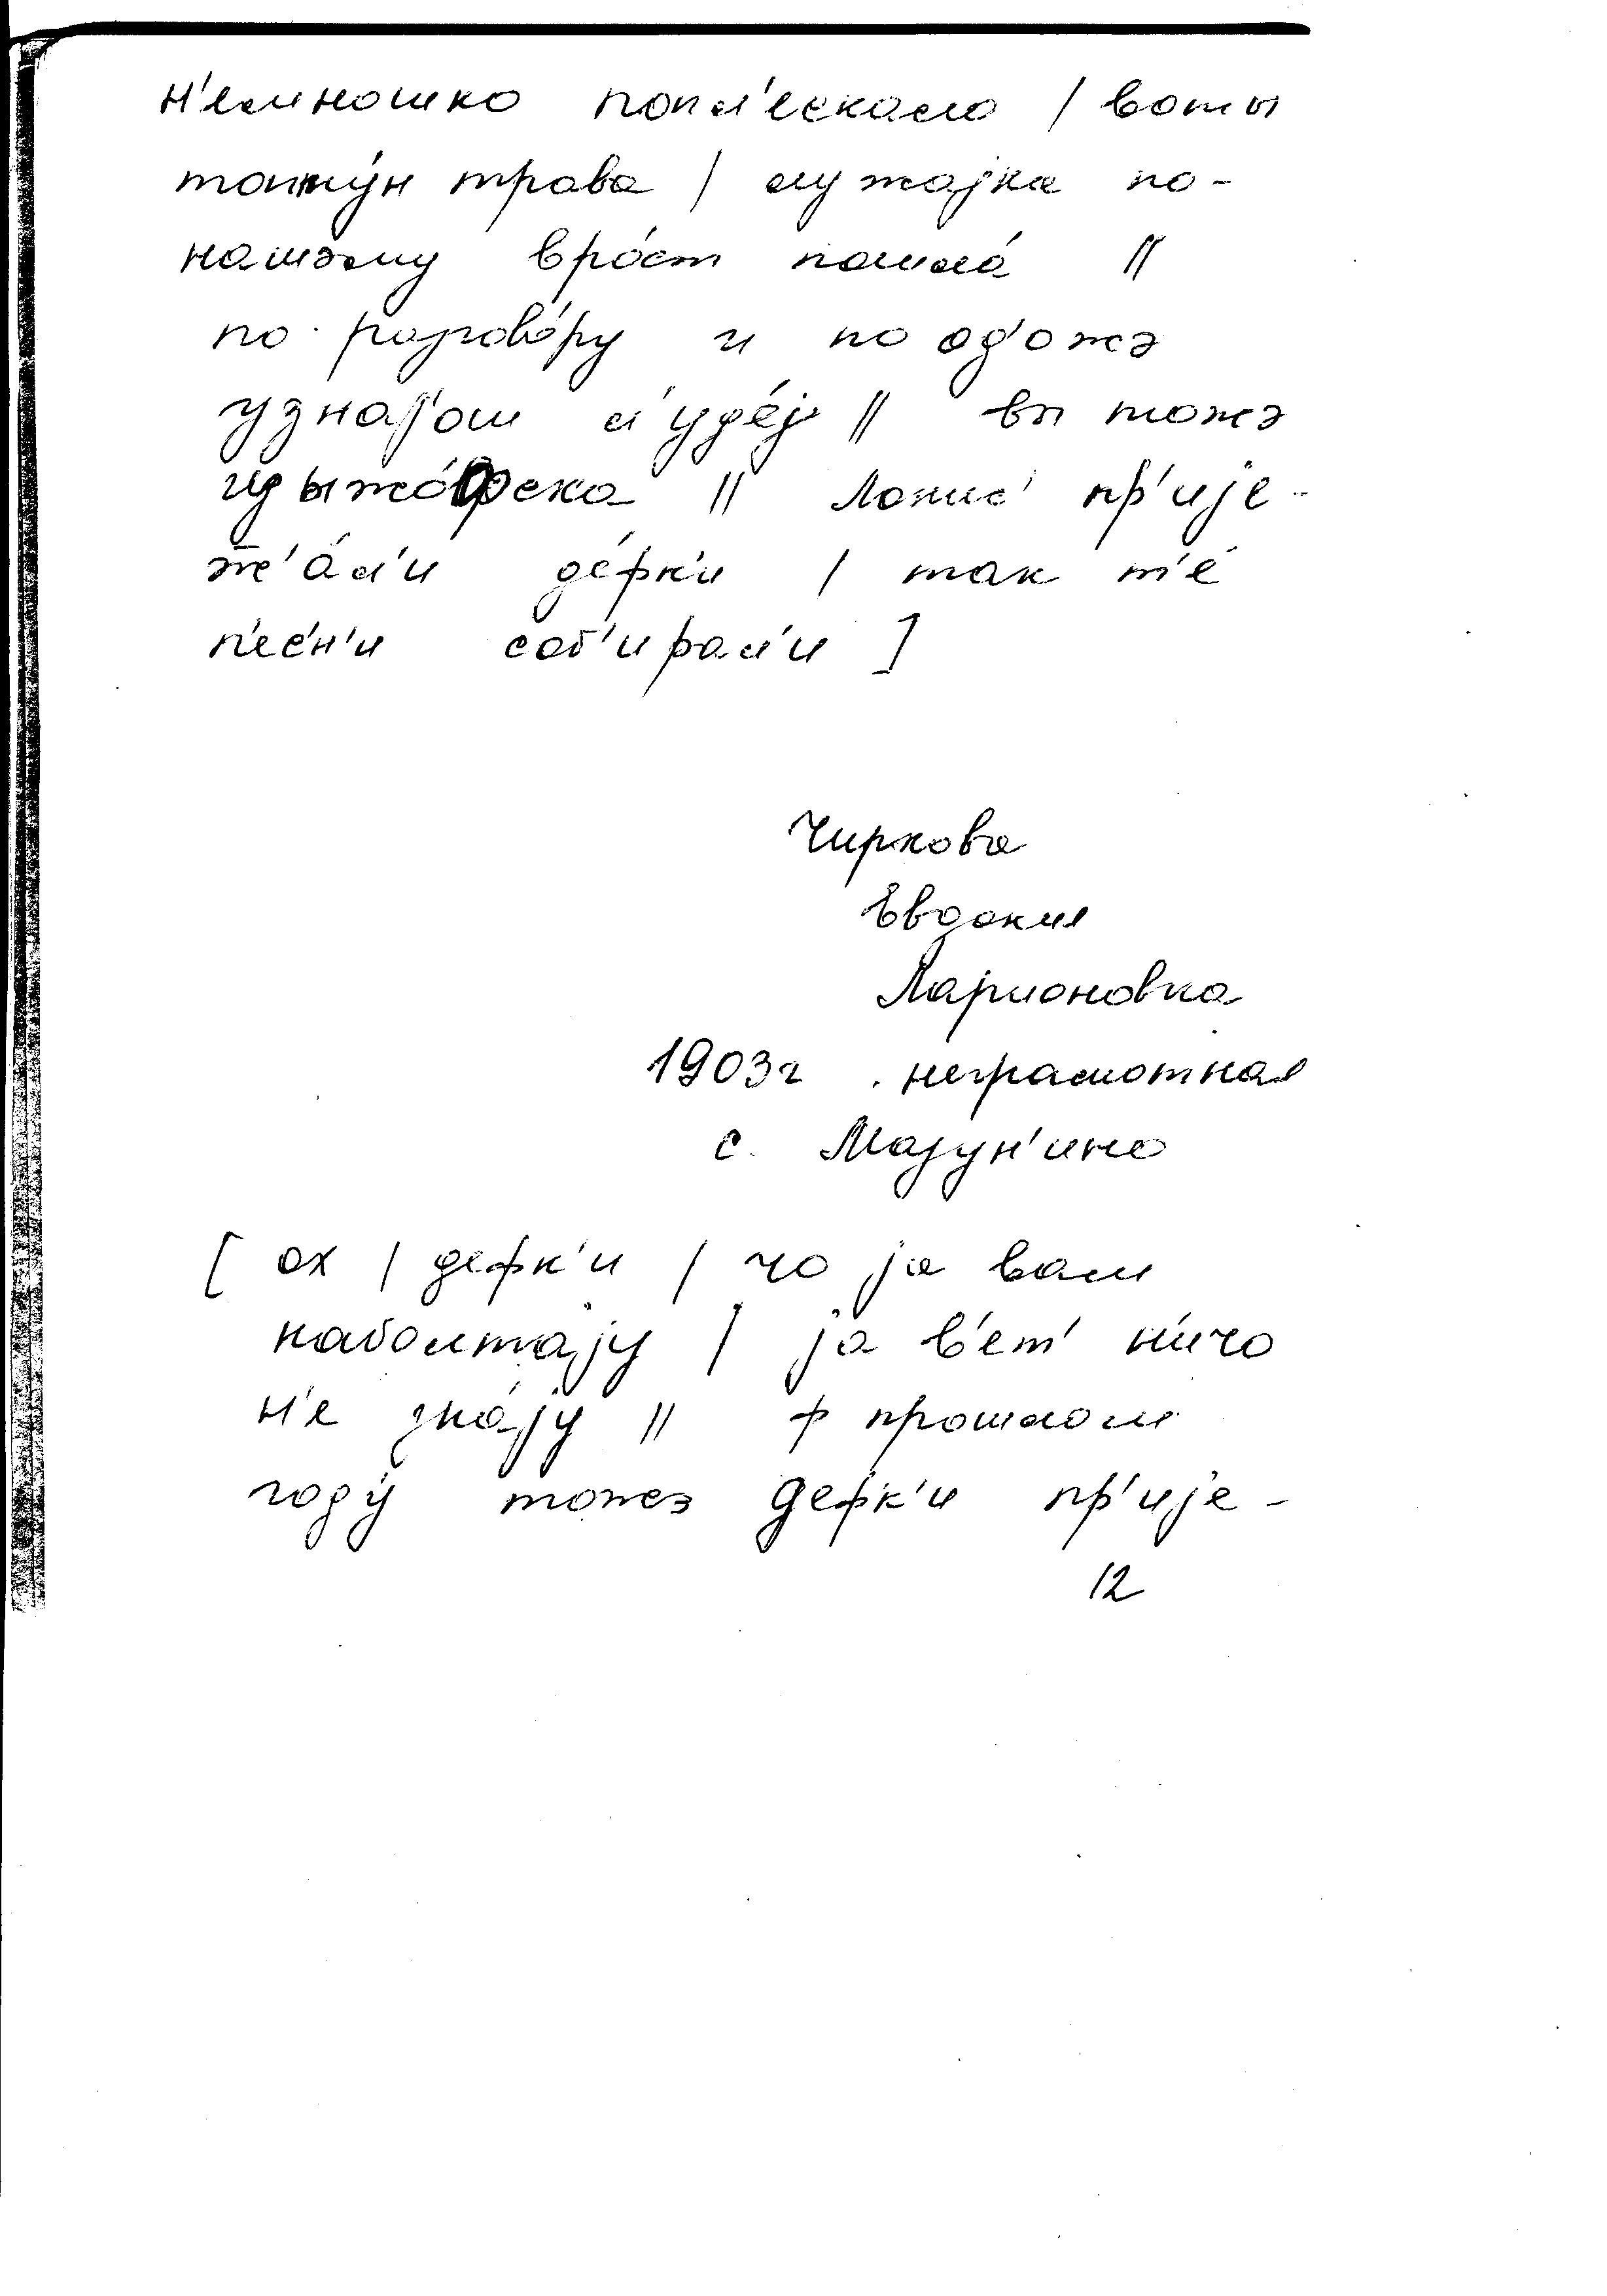 н'емношко попл'ескало / воты
топту́н трава / лужајка по-
нашэму вро́ст пошла́ //
по разгово́ру и по од'ожэ
узнајош л'уде́ј // вы тожэ
ижо́фска // Лонис' пр'ијe-
ж̅'а́л'и де́фк'и / так т'е́
п'е́с'н'и соб'ирал'и ]
Чиркова
Евдокия
Ларионовна
1903г. неграмотная
с. Мазун'ино
[ ох / дефк'и / чо ја вам
наболта́ју / ја в'ет' н'ичо
н'е зна́ју // ф прошлом
году́ тожэ дефк'и пр'ије-
12